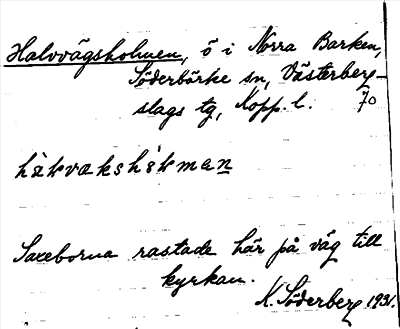 Halvvägsholmen, ö i Norra Barken,
Söderbärke sn, Västerberg-
slags tg, Kopp. l. 70
Saxeborna rastade här på väg till
kyrkan.
K. Söderberg 1931.